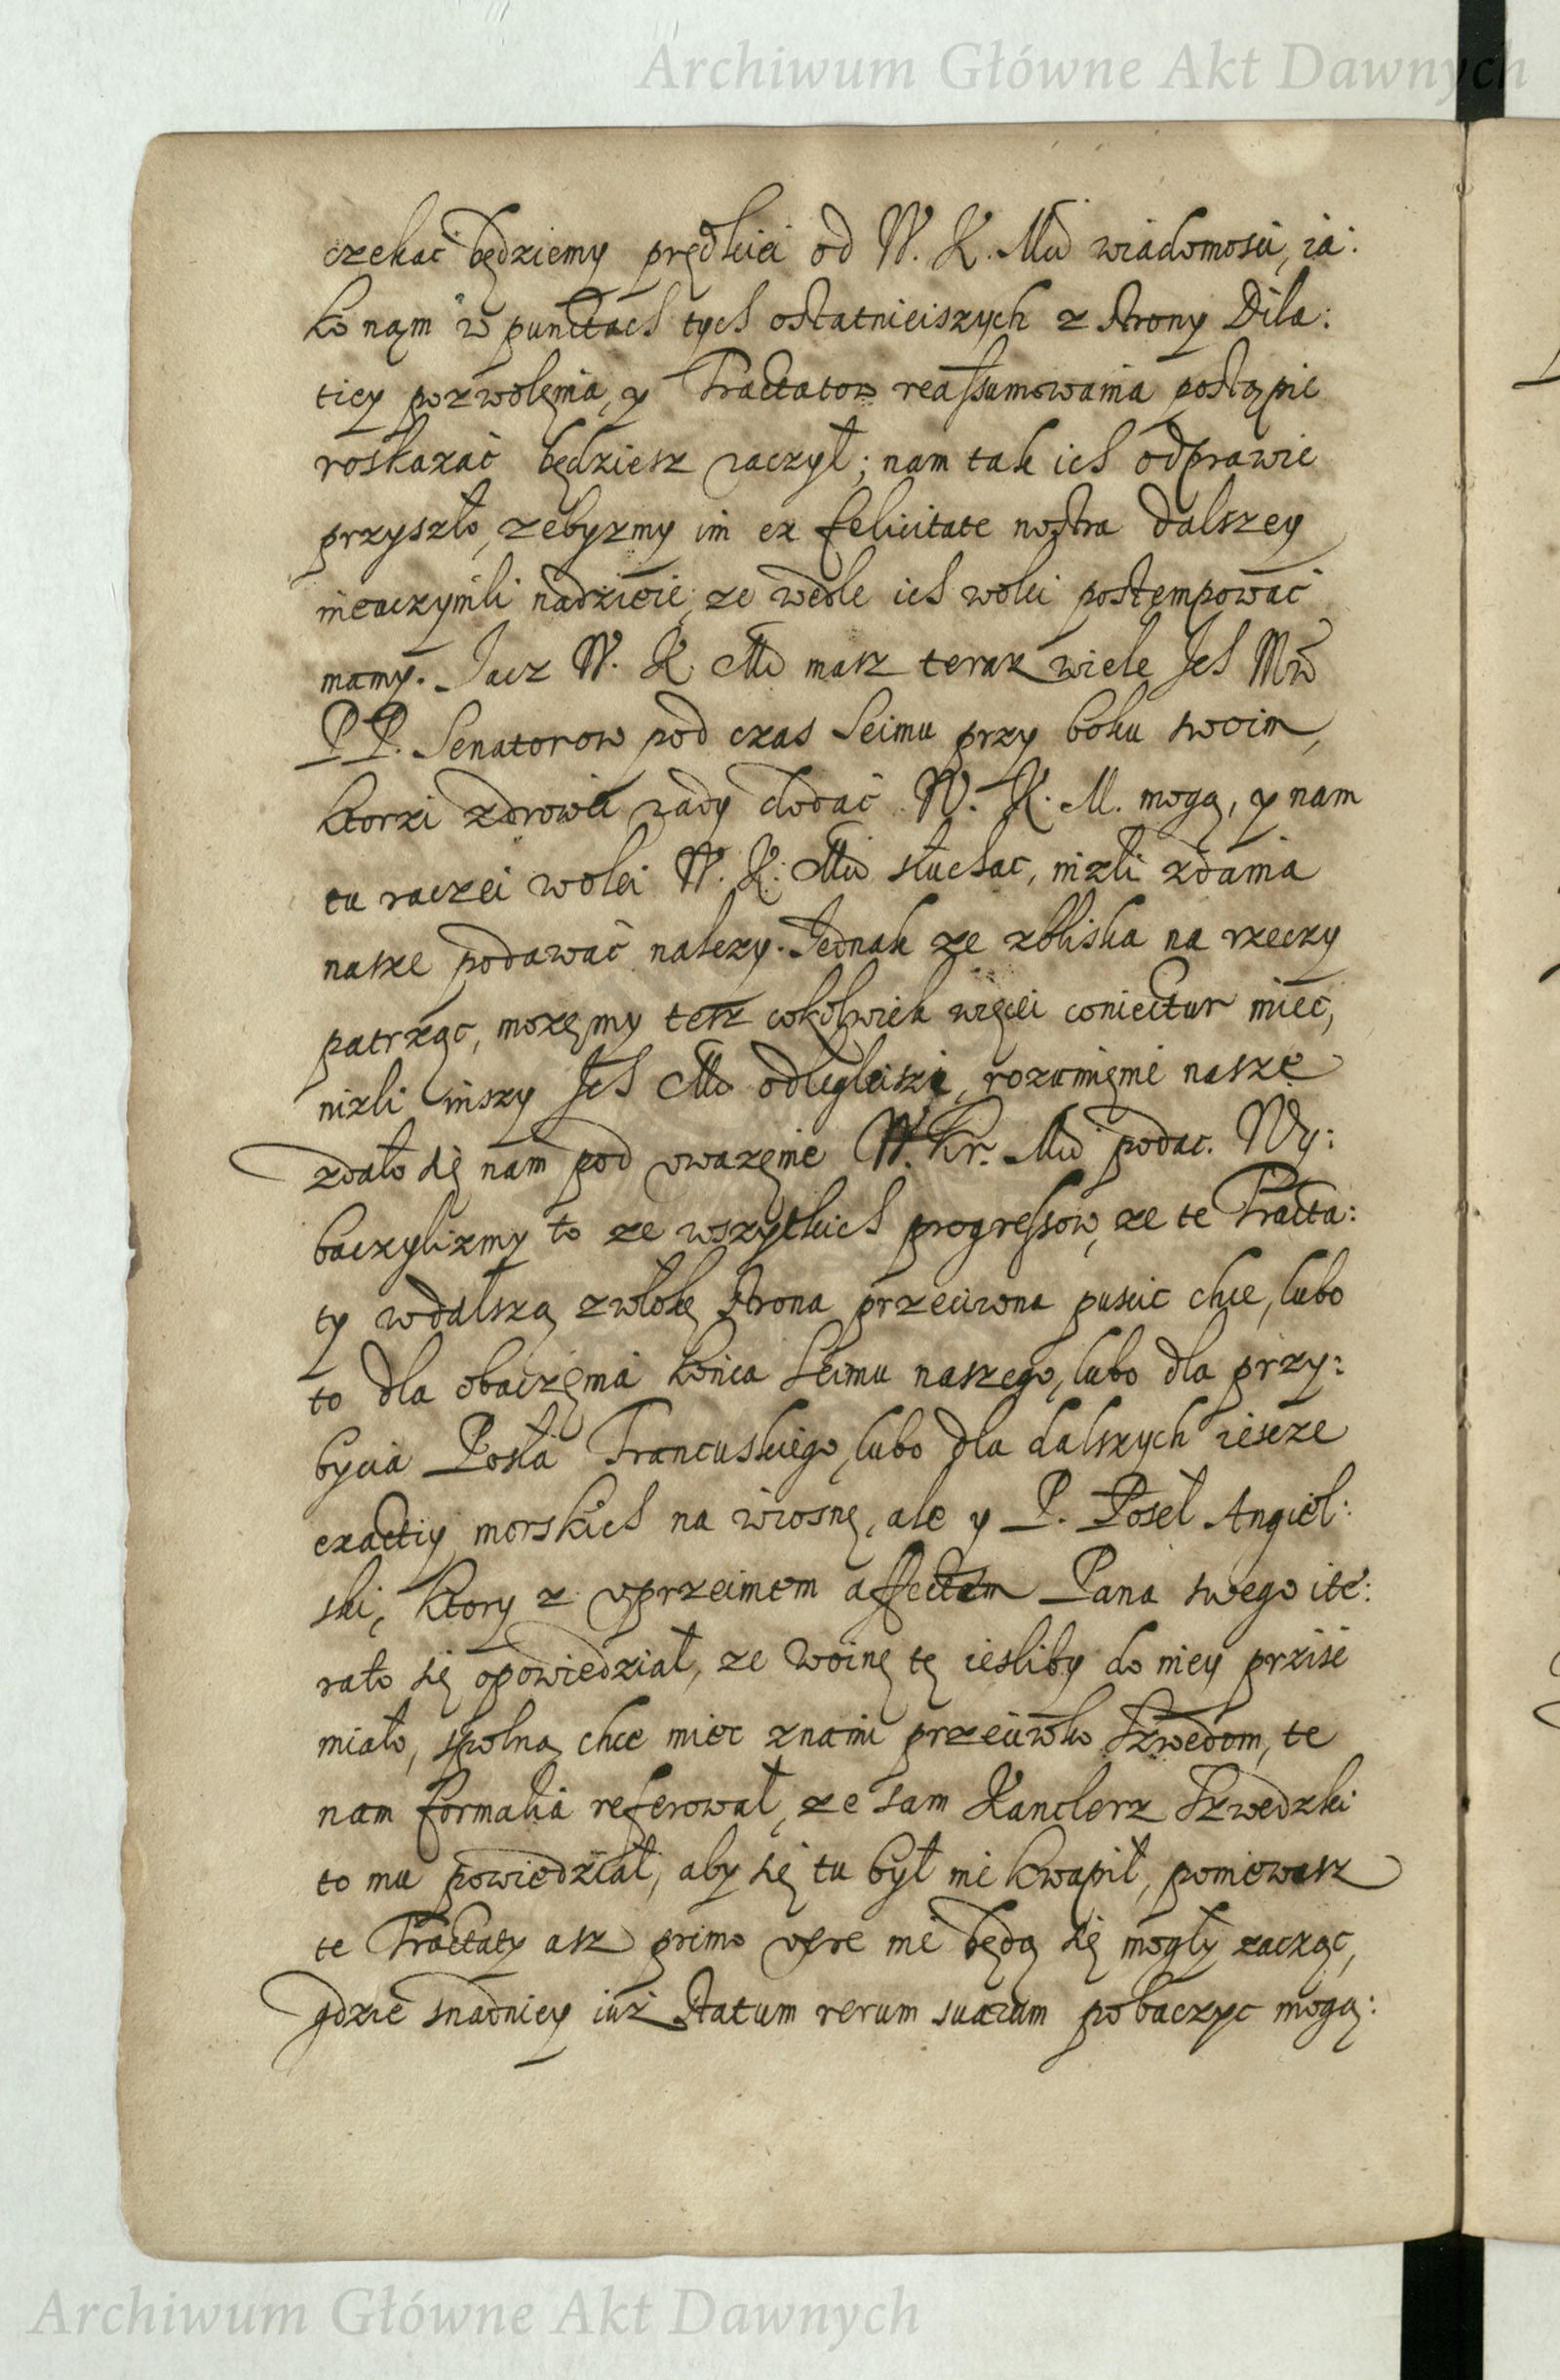 Archiwum Główne Akt Dawnych
czekac będziemy prędkiei od W. K. Mci wiadomosci, ia:
ko nąm w punctach tych ostatnieiszych z strony Dila:
ticy pozwolęnia, y Tractatow reassumowania postąpic
roskazać będziesz raczył; nam tak ich odprawic
przyszło, zebyzmy im ex felicitate nostra dalszey
nieuczynili nadzieie, ze wedle ich wolei postęmpować
mamy. Iacz W. K. Mc masz teraz wiele Ich Mw
P P. Senatorow pod czas Seimu przy boku swoim,
ktorzi zdrowei rady dodać W. K. M. mogą, y nam
tu raczei wolei W. K. Mci słuchac, nizli zdania
nasze podawać nalezy. Iednak ze zbliska na rzeczy
patrząc, mozęmy tesz cokolwiek więcei coniectur miec,
nizli inszy Ich Mc odlegleiszi, rozumięnie nasze
zdało się nam pod uwazęnie W. Kr. Mci podac. Wy:
baczylizmy to ze wszytkich progressow, ze te Tracta:
ty wdalszą zwłokę strona przeciwna puscic chce, lubo
to dla obaczęnia konca Seimu naszego, lubo dla przy:
bycia Posła Francuskiego, lubo dla dalszych iescze
exactiy morskich na wiosnę, ale y P. Poseł Angiel:
ski, ktory z uprzeimem affectem Pana swego ite:
rato się opowiedział, ze woinę tę iesliby do niey przisc
miało, spolną chce miec znami przeciwko Szwedom, te
nam formalia referował, ze sam Kanclerz Szwedzki
to mu powiedział, aby się tu był nie kwapił, poniewasz
te Tractaty asz primo vere nie będą się mogły zacząc,
gdzie snadniey iuz statum rerum suarum pobaczyc mogą:
Archiwum Główne Akt Dawnych